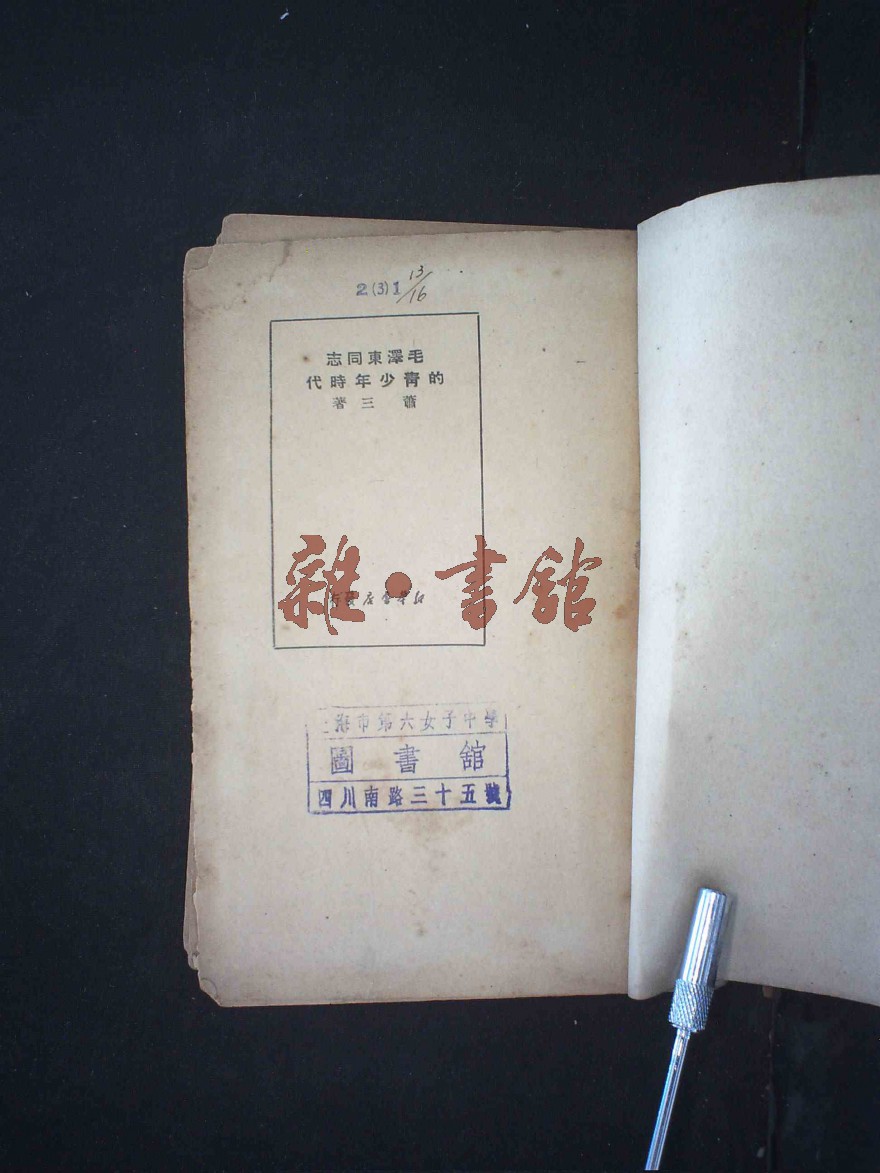 2(3)1 13/16
毛澤東同志
的青少年時代
蕭三著
新華書店發行
雜·書館
上海市第六女子中學
圖書館
四川南路三十五號